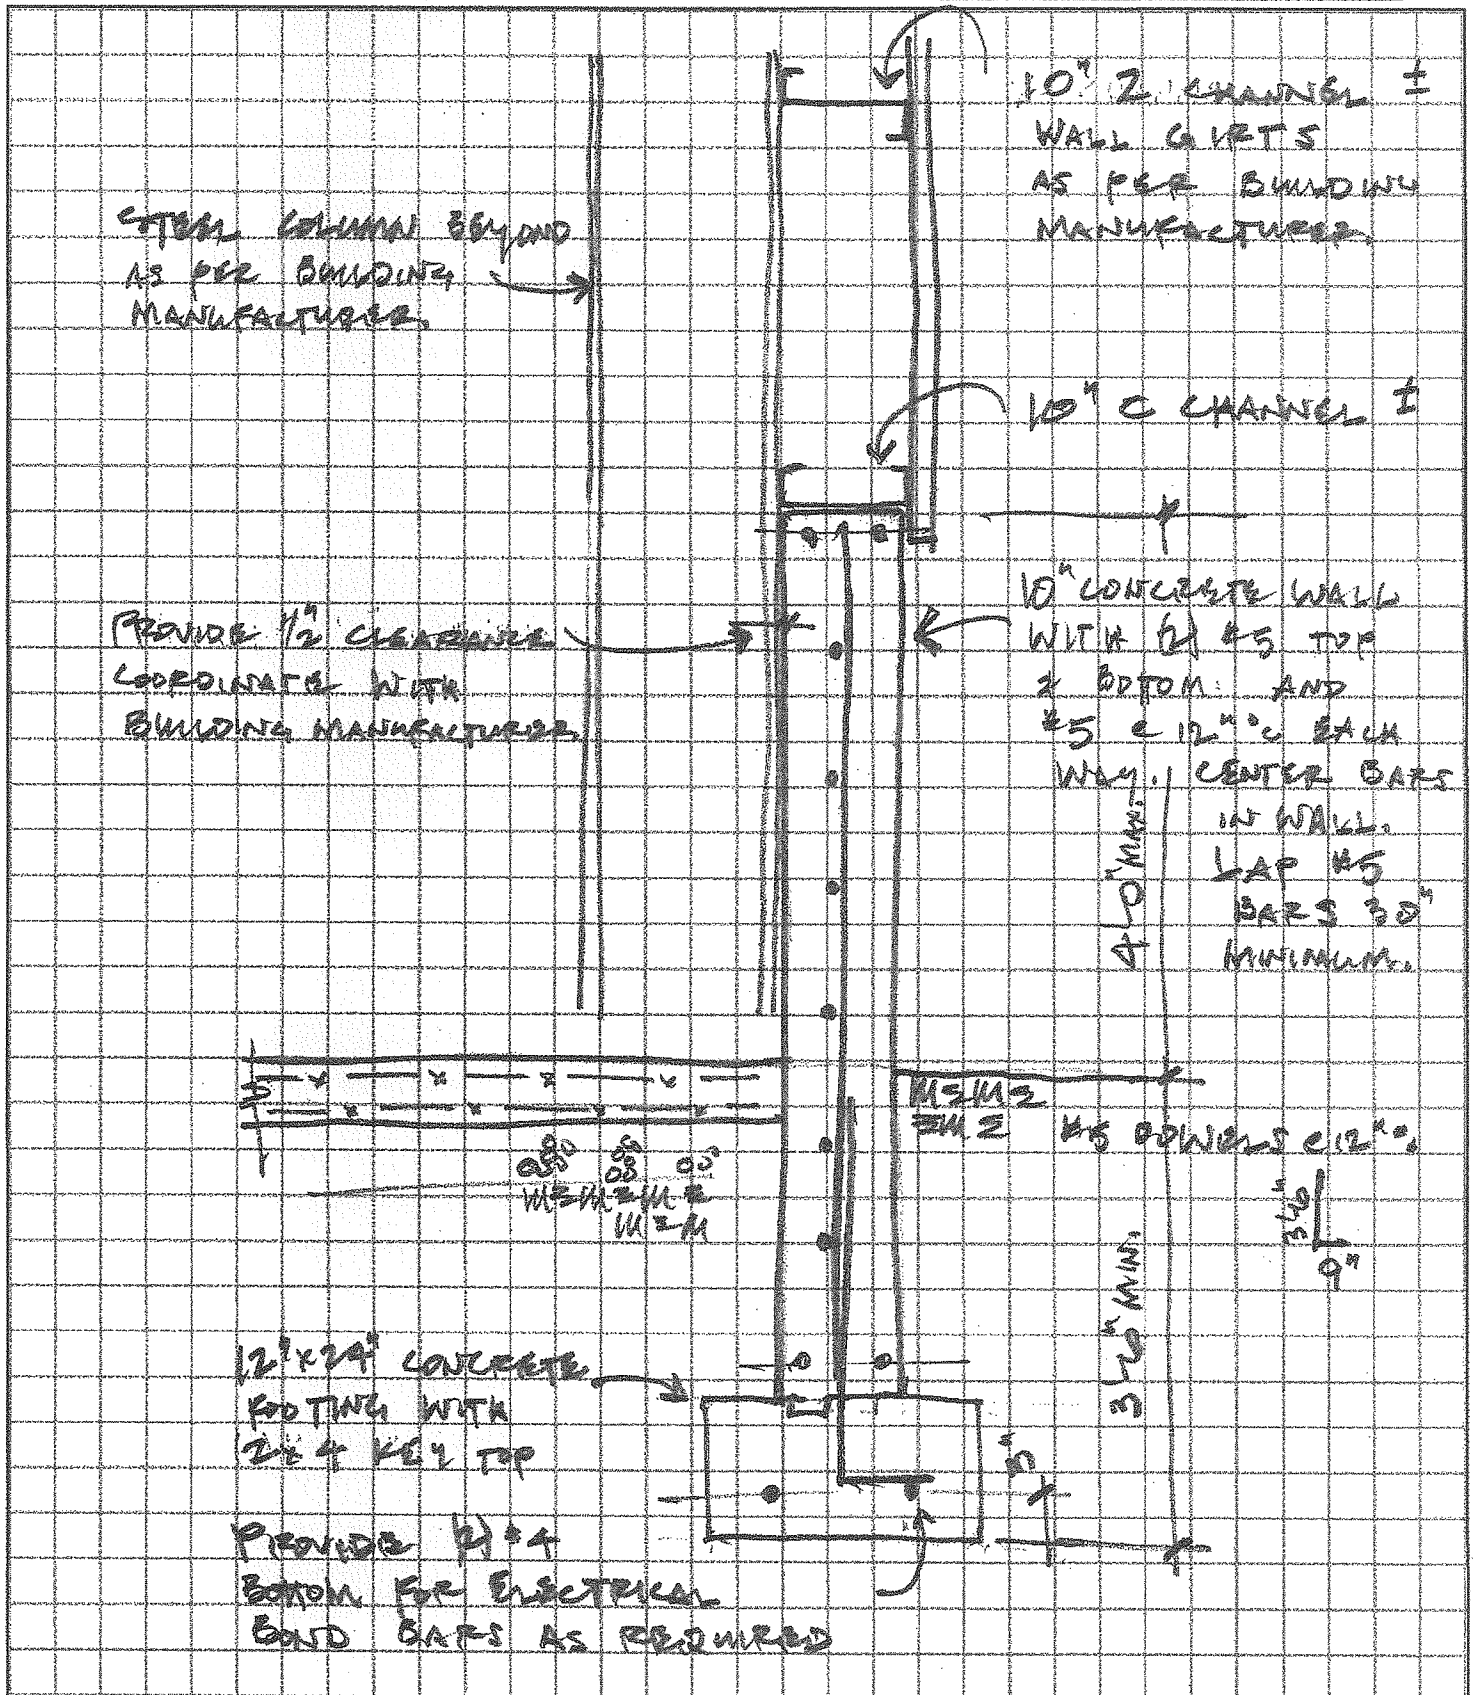 10" Z CHANNEL ±
WALL GIRTS
AS PER BUILDING
MANUFACTURER.
STEEL COLUMN BEYOND
AS PER BUILDING
MANUFACTURER.
10" C CHANNEL ±
10" CONCRETE WALL
WITH (2) #5 TOP
& BOTTOM. AND
#5 @ 12" oc EACH
WAY. CENTER BARS
IN WALL.
LAP #5
BARS 30"
MINIMUM.
PROVIDE 1/2" CLEARANCE
COORDINATE WITH
BUILDING MANUFACTURER.
4'-0" MAX.
#5 DOWELS @ 12" oc
3'-6"
9"
3'-6" MIN.
12" x 24" CONCRETE
FOOTING WITH
2x4 KEY TOP
PROVIDE (2) #4
BOTTOM FOR ELECTRICAL
BOND BARS AS REQUIRED